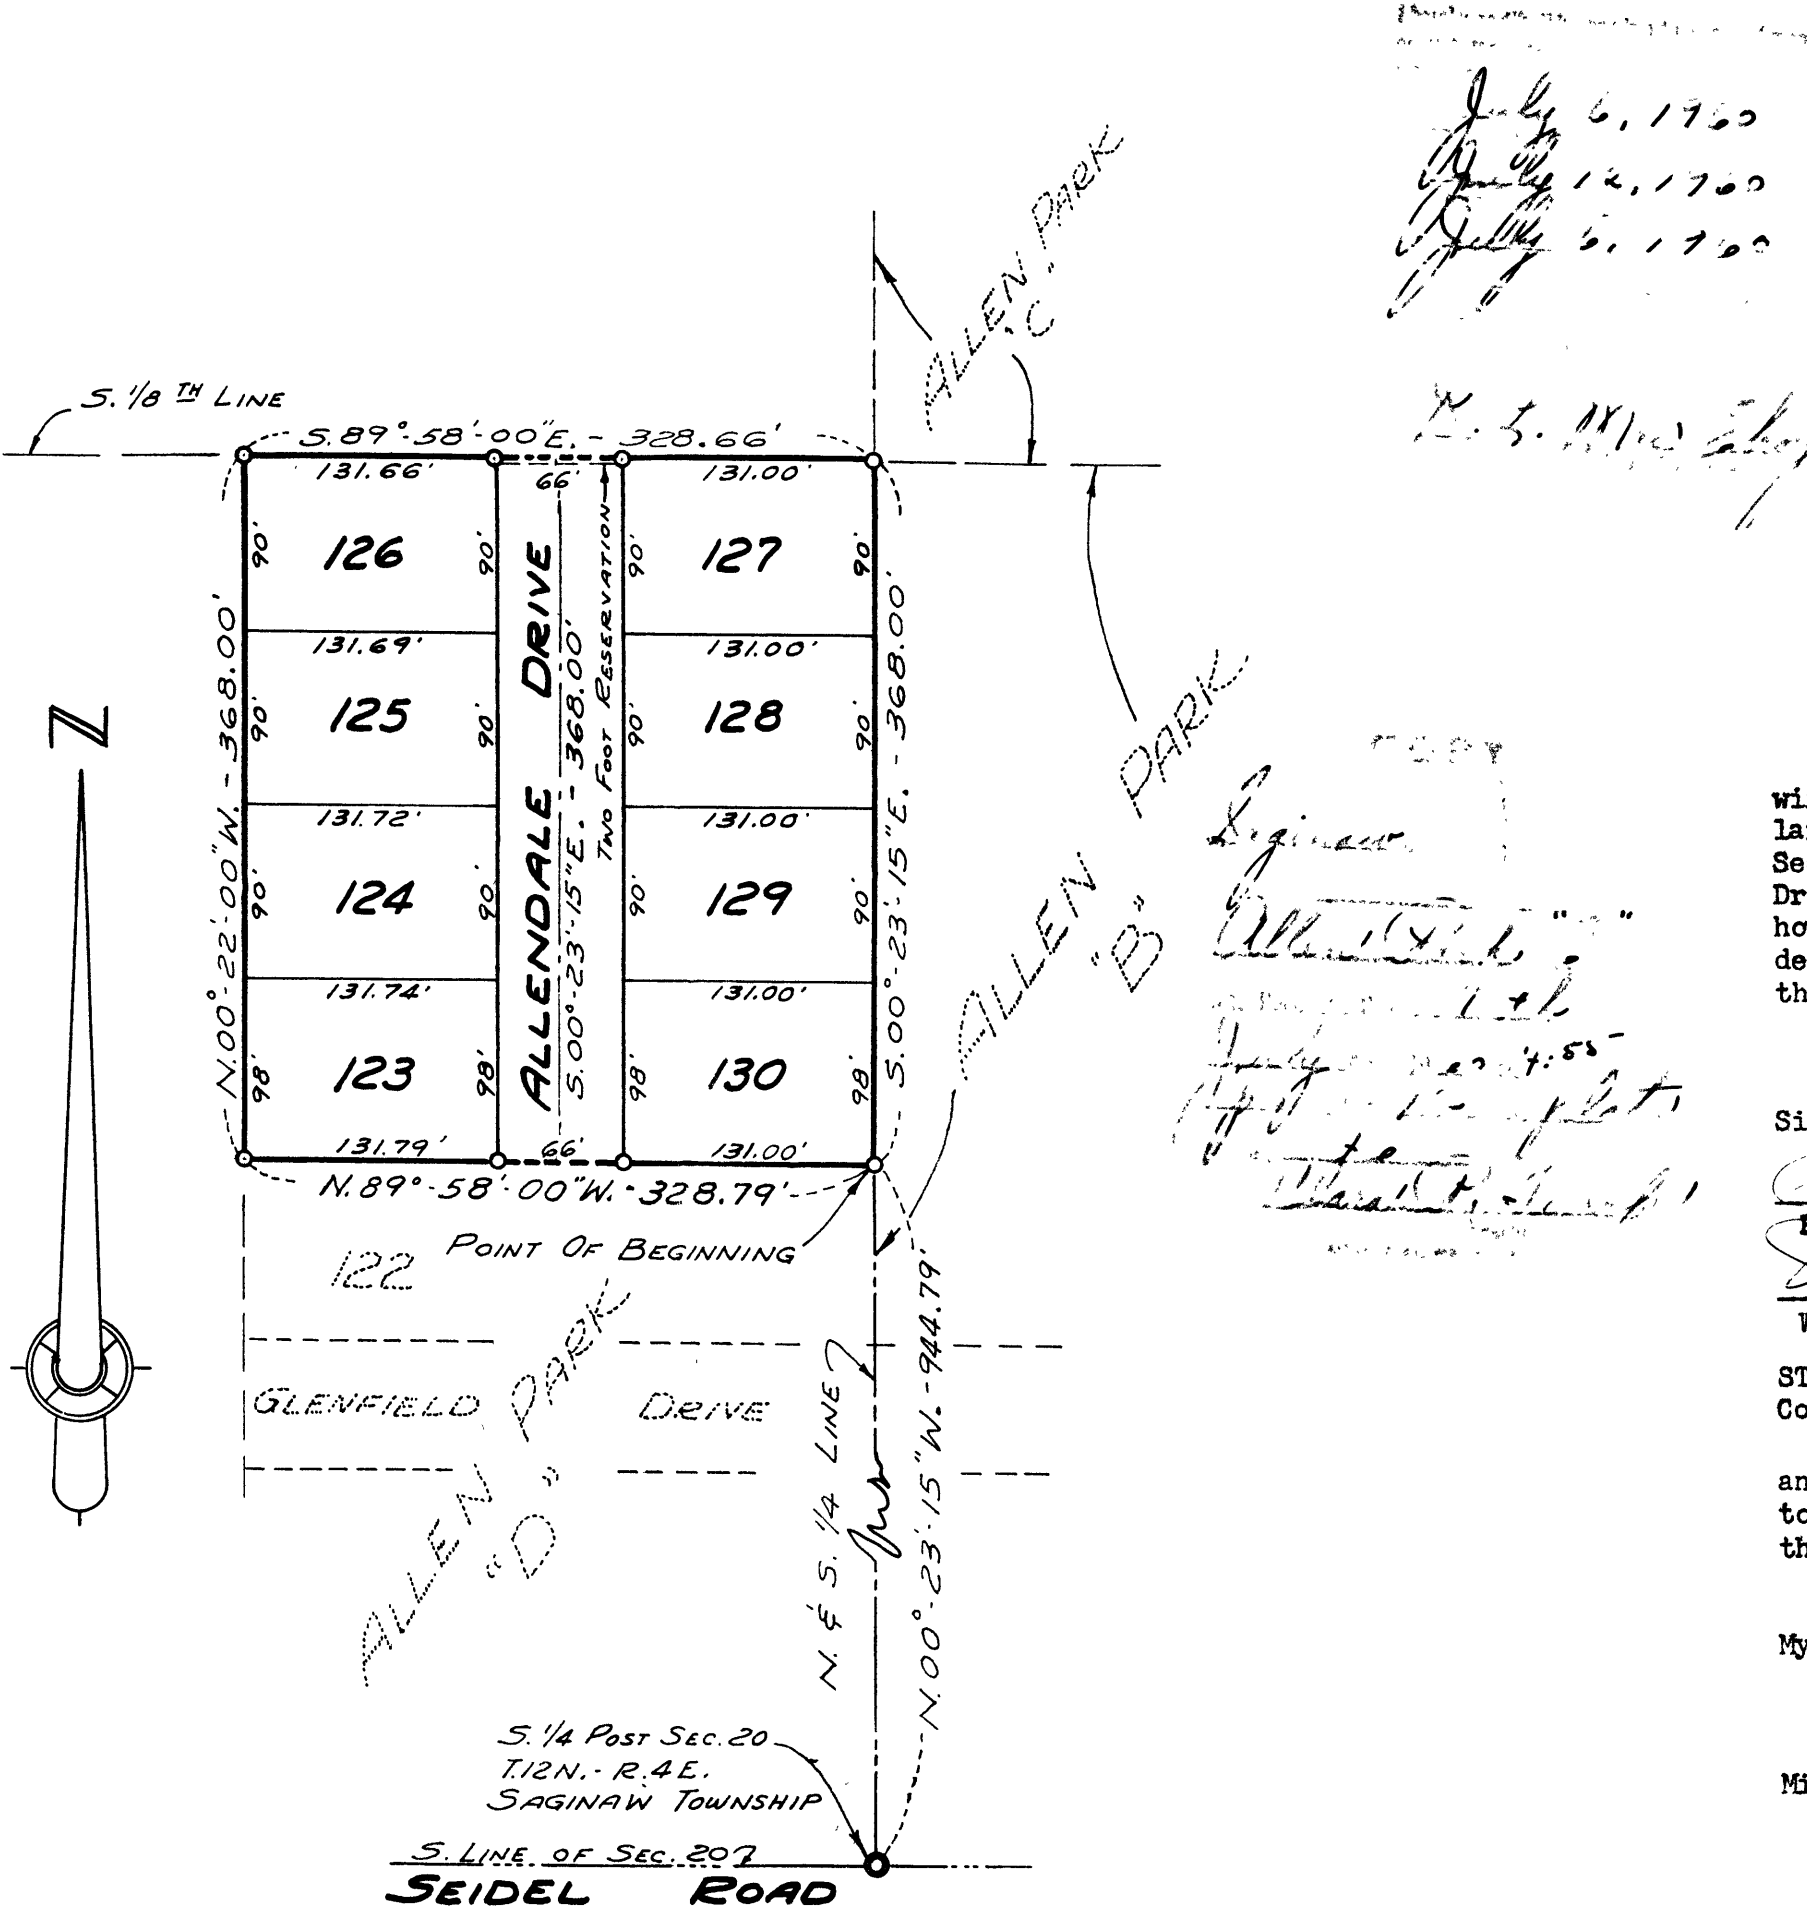 July 6, 1960
July 12, 1960
July 6, 1960
ALLEN PARK
"C"
S. 1/8 TH LINE
S. 89°-58'-00"E. - 328.66'
131.66'
66'
131.00'
90'
126
90'
90'
127
90'
131.69'
131.00'
90'
125
90'
90'
128
90'
131.72'
131.00'
90'
124
90'
90'
129
90'
131.74'
131.00'
98'
123
98'
98'
130
98'
131.79'
66'
131.00'
N. 00°-22'-00"W. - 368.00'
ALLENDALE DRIVE
S. 00°-23'-15"E. - 368.00'
TWO FOOT RESERVATION
S. 00°-23'-15"E. - 368.00'
N. 89°-58'-00"W. - 328.79'
POINT OF BEGINNING
N
ALLEN PARK
"B"
COPY
Saginaw
Allen Park
July
4:55
plats
122
GLENFIELD DRIVE
ALLEN PARK
"D"
N. & S. 1/4 LINE
N. 00°-23'-15"W. - 944.79'
S. 1/4 POST SEC. 20
T.12N. - R.4E.
SAGINAW TOWNSHIP
S. LINE OF SEC. 20
SEIDEL ROAD
wi
la
Se
Dr
ho
de
th
Si
ST
Co
an
to
th
My
Mi